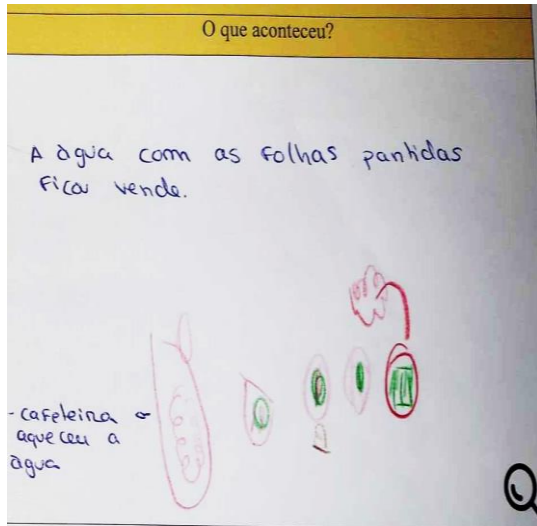 O que aconteceu?
A água com as folhas partidas
fica verde.
- cafeteira
aqueceu a
água